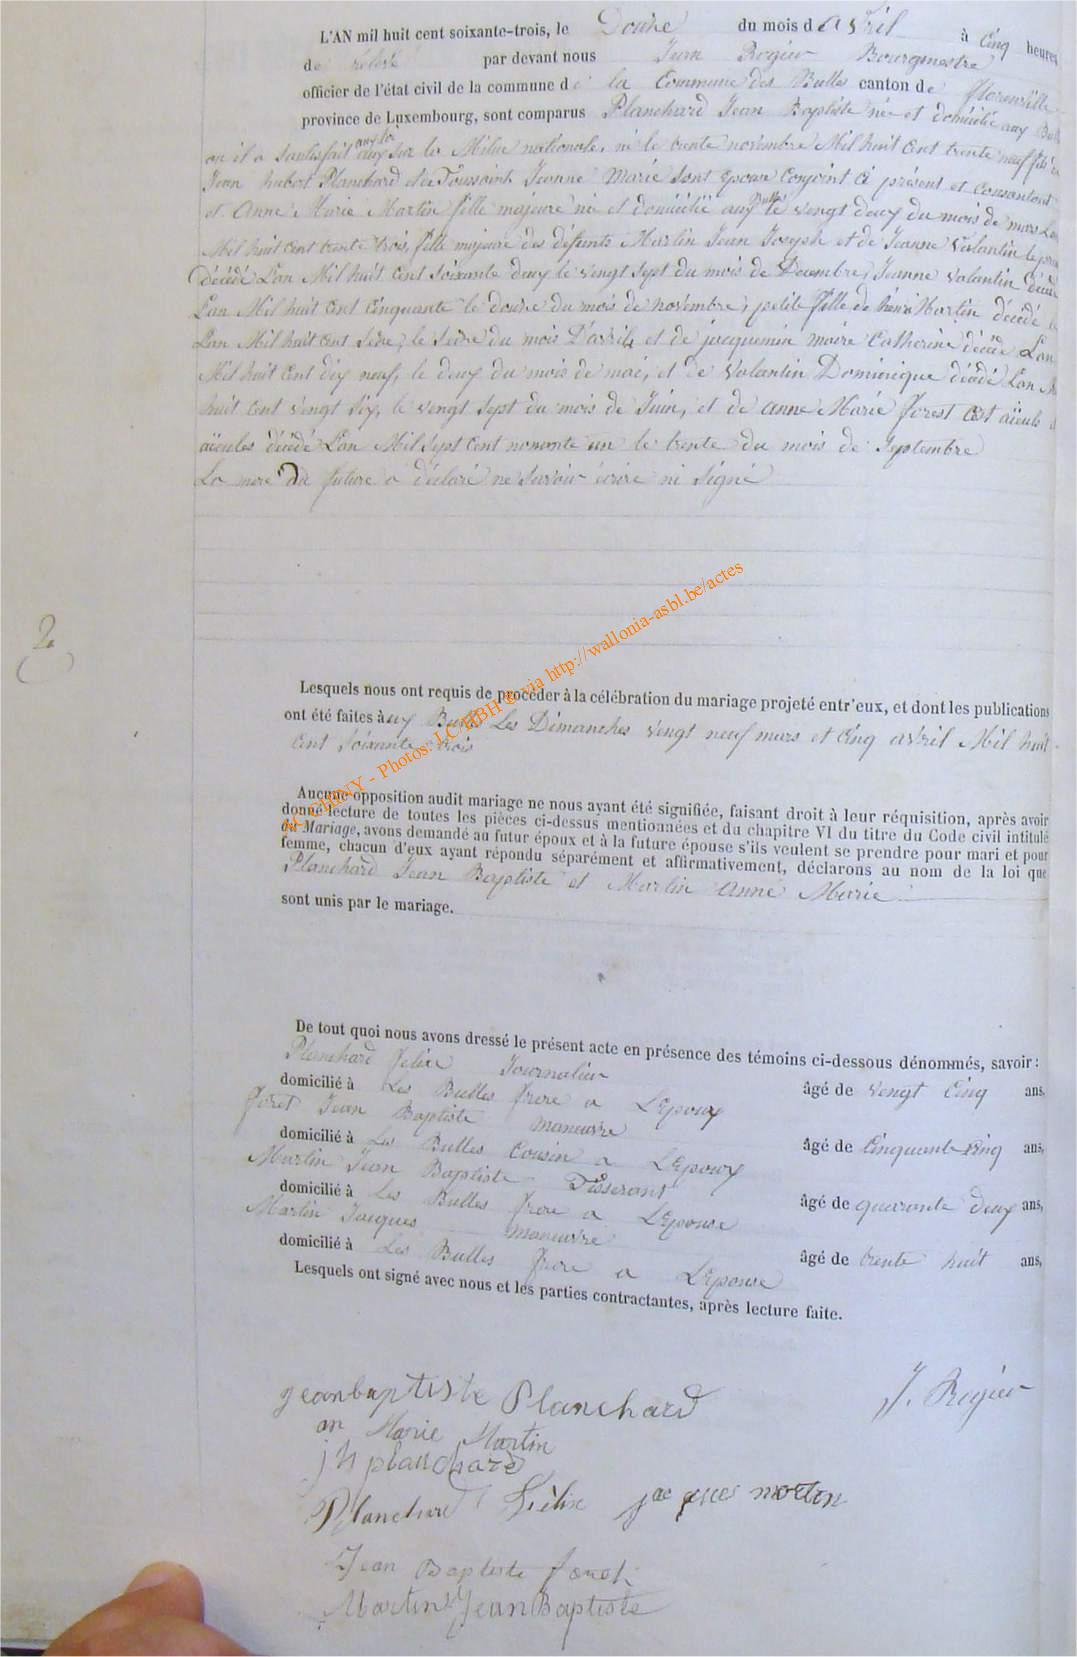 L'AN mil huit cent soixante-trois, le Douze du mois d avril à Cinq heures
de relevé par devant nous Jean Rogier Bourgmestre
officier de l'état civil de la commune de la Commune des Bulles canton de florenville
province de Luxembourg, sont comparus Planchard Jean Baptiste né et domicilié aux Bulles
ou il a Santisfait aux loi sur la Milice nationale, né le trente novembre Mil huit Cent trente neuf fils de
Jean hubert Planchard et de Toussaint Jeanne Marie Sont epoux Conjoint Ci présent et Consentant
et Anne Marie Martin fille majeure né et domicilié aux Bulles le vingt deux du mois de mars Lan
Mil huit Cent trente trois, fille majeure des défunts Martin Jean Joseph et de Jeanne Valantin le
Décédé L'an Mil huit Cent Soixante deux le vingt Sept du mois de Decembre, Jeanne Valantin décédé
L'an Mil huit Cent Cinquante le douze du mois de novembre, petite fille de henri Martin décédé
Lan Mil huit Cent Seize, le Seize du mois D'avril, et de jacquemin marie Catherine décédé Lan
Mil huit Cent dix neuf, le deux du mois de mai, et de Valantin Dominique décédé Lan
huit Cent vingt Six, le vingt Sept du mois de Juin, et de anne Marie forest Cest aïeuls
aïeules décédé L'an Mil Sept Cent nonante un le trente du mois de Septembre
La mere du future a déclaré ne Savoir écrire ni Signé
2
Lesquels nous ont requis de procéder à la célébration du mariage projeté entr'eux, et dont les publications
ont été faites aux Bulles Les Dimanches vingt neuf mars et Cinq avril Mil huit
Cent Soixante trois
AC CHINY - Photos: J.C. HBH © via http://wallonia-asbl.be/actes
Aucune opposition audit mariage ne nous ayant été signifiée, faisant droit à leur réquisition, après avoir
donné lecture de toutes les pièces ci-dessus mentionnées et du chapitre VI du titre du Code civil intitulé
du Mariage, avons demandé au futur époux et à la future épouse s'ils veulent se prendre pour mari et pour
femme, chacun d'eux ayant répondu séparément et affirmativement, déclarons au nom de la loi que
Planchard Jean Baptiste et Martin Anne Marie
sont unis par le mariage.
De tout quoi nous avons dressé le présent acte en présence des témoins ci-dessous dénommés, savoir :
Planchard felix Journalier
domicilié à Les Bulles frere a L'Epoux âgé de vingt Cinq ans,
foret Jean Baptiste maneuvre
domicilié à Les Bulles Cousin a L'Epoux âgé de Cinquante Cinq ans,
Martin Jean Baptiste Tisserant
domicilié à Les Bulles frere a L'Epouse âgé de quarante deux ans,
Martin Jacques maneuvre
domicilié à Les Bulles frere a L'Epouse âgé de trente huit ans,
Lesquels ont signé avec nous et les parties contractantes, après lecture faite.
jeanbaptiste Planchard J. Rogier
an Marie Martin
j h planchard
Planchard Félix jacques martin
Jean Baptiste foret
Martin Jean Baptiste